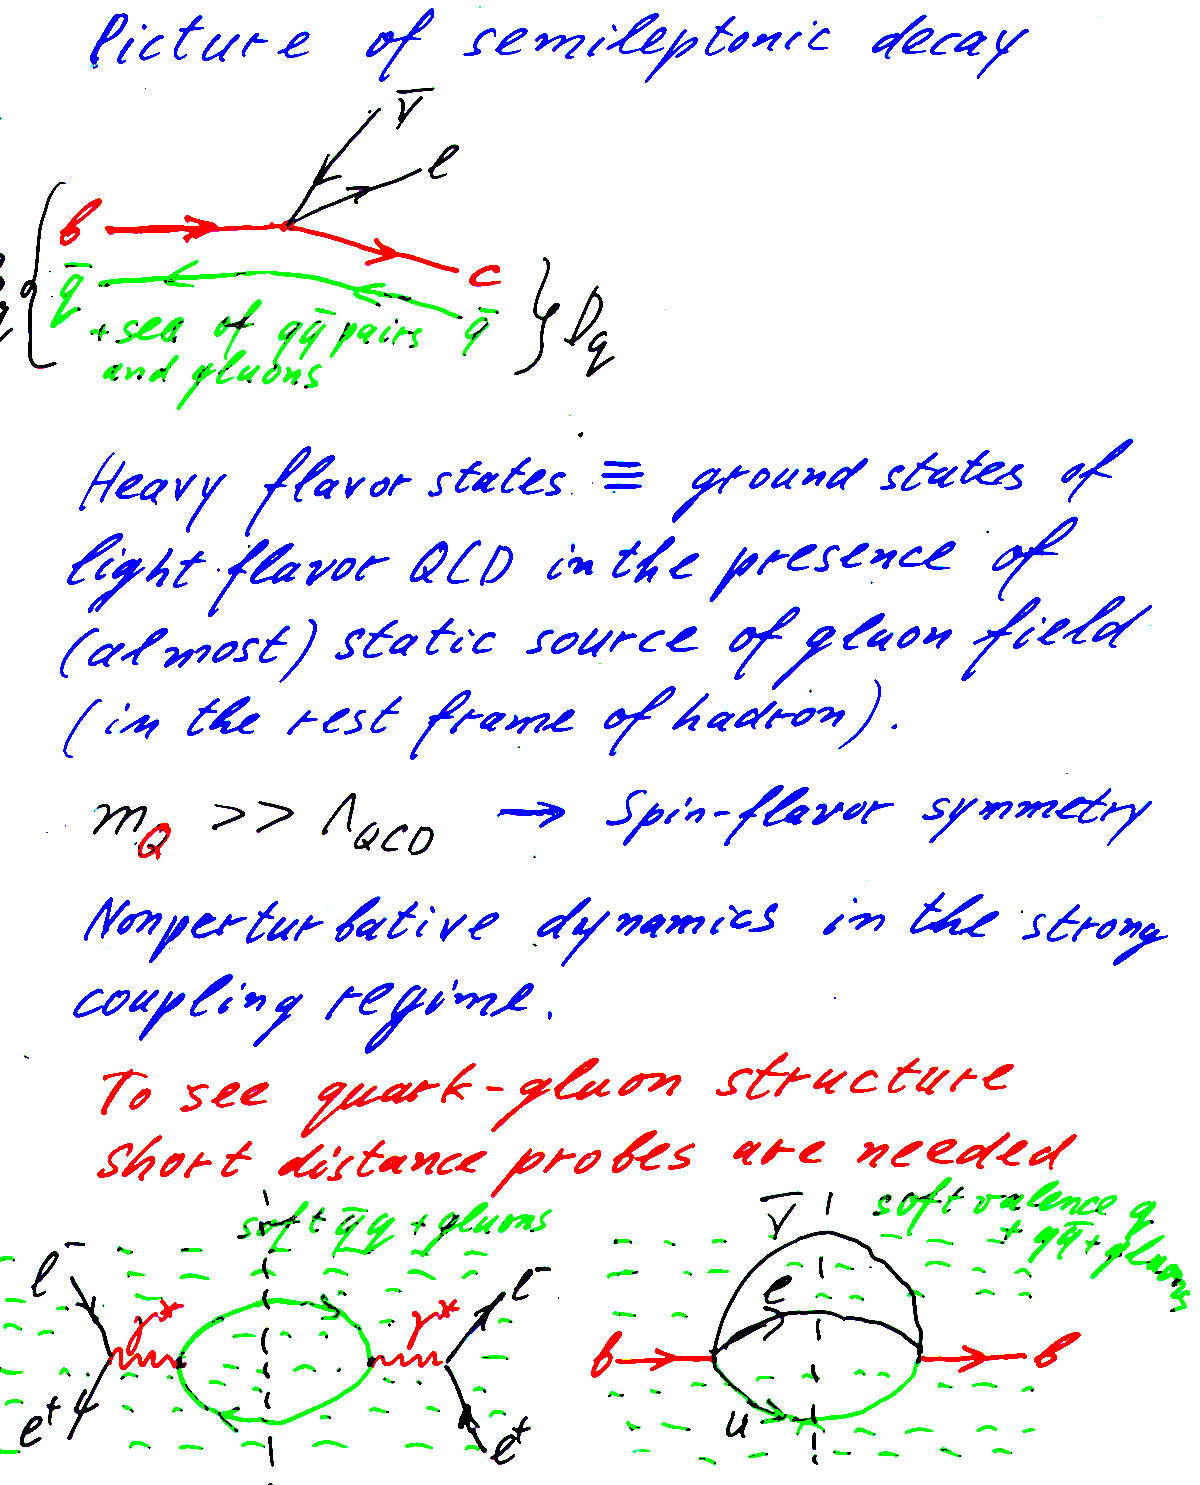 Picture of semileptonic decay
ν̄
l
b
c
q̄
q̄
+ sea of qq̄ pairs
and gluons
D_q
Heavy flavor states ≡ ground states of
light flavor QCD in the presence of
(almost) static source of gluon field
(in the rest frame of hadron).
m_Q >> Λ_QCD → Spin-flavor symmetry
Nonperturbative dynamics in the strong
coupling regime.
To see quark-gluon structure
Short distance probes are needed
soft q̄q + gluons
l⁻
γ*
γ*
l⁻
e⁺
e⁺
ν̄
soft valence q
+ qq̄ + gluons
e
b
b
u